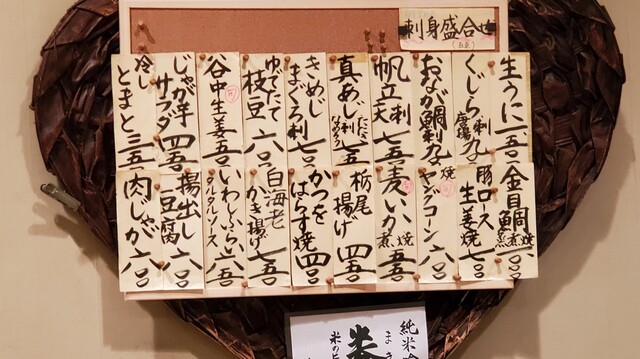 刺身盛合せ
生うに 一、五〇
くじら 刺 唐揚 九〇
おなが鯛刺 九〇
帆立 刺 天 七五
真あじ 刺 たたき なめろう 一、一五
きめじまぐろ刺 七〇
ゆでたて枝豆 六〇
谷中生姜 五〇
じゃが芋サラダ 四五
冷しとまと 三五
金目鯛 煮 焼
豚ロース生姜焼 七〇〇
焼ヤングコーン 六〇〇
麦いか 煮 焼 五五
栃尾揚げ 四五
かつをはらす焼 四〇
白海老かき揚げ 七五
いわしふらい タルタルソース 六五
揚出し豆腐 六〇〇
肉じゃが 六〇〇
純米吟
米